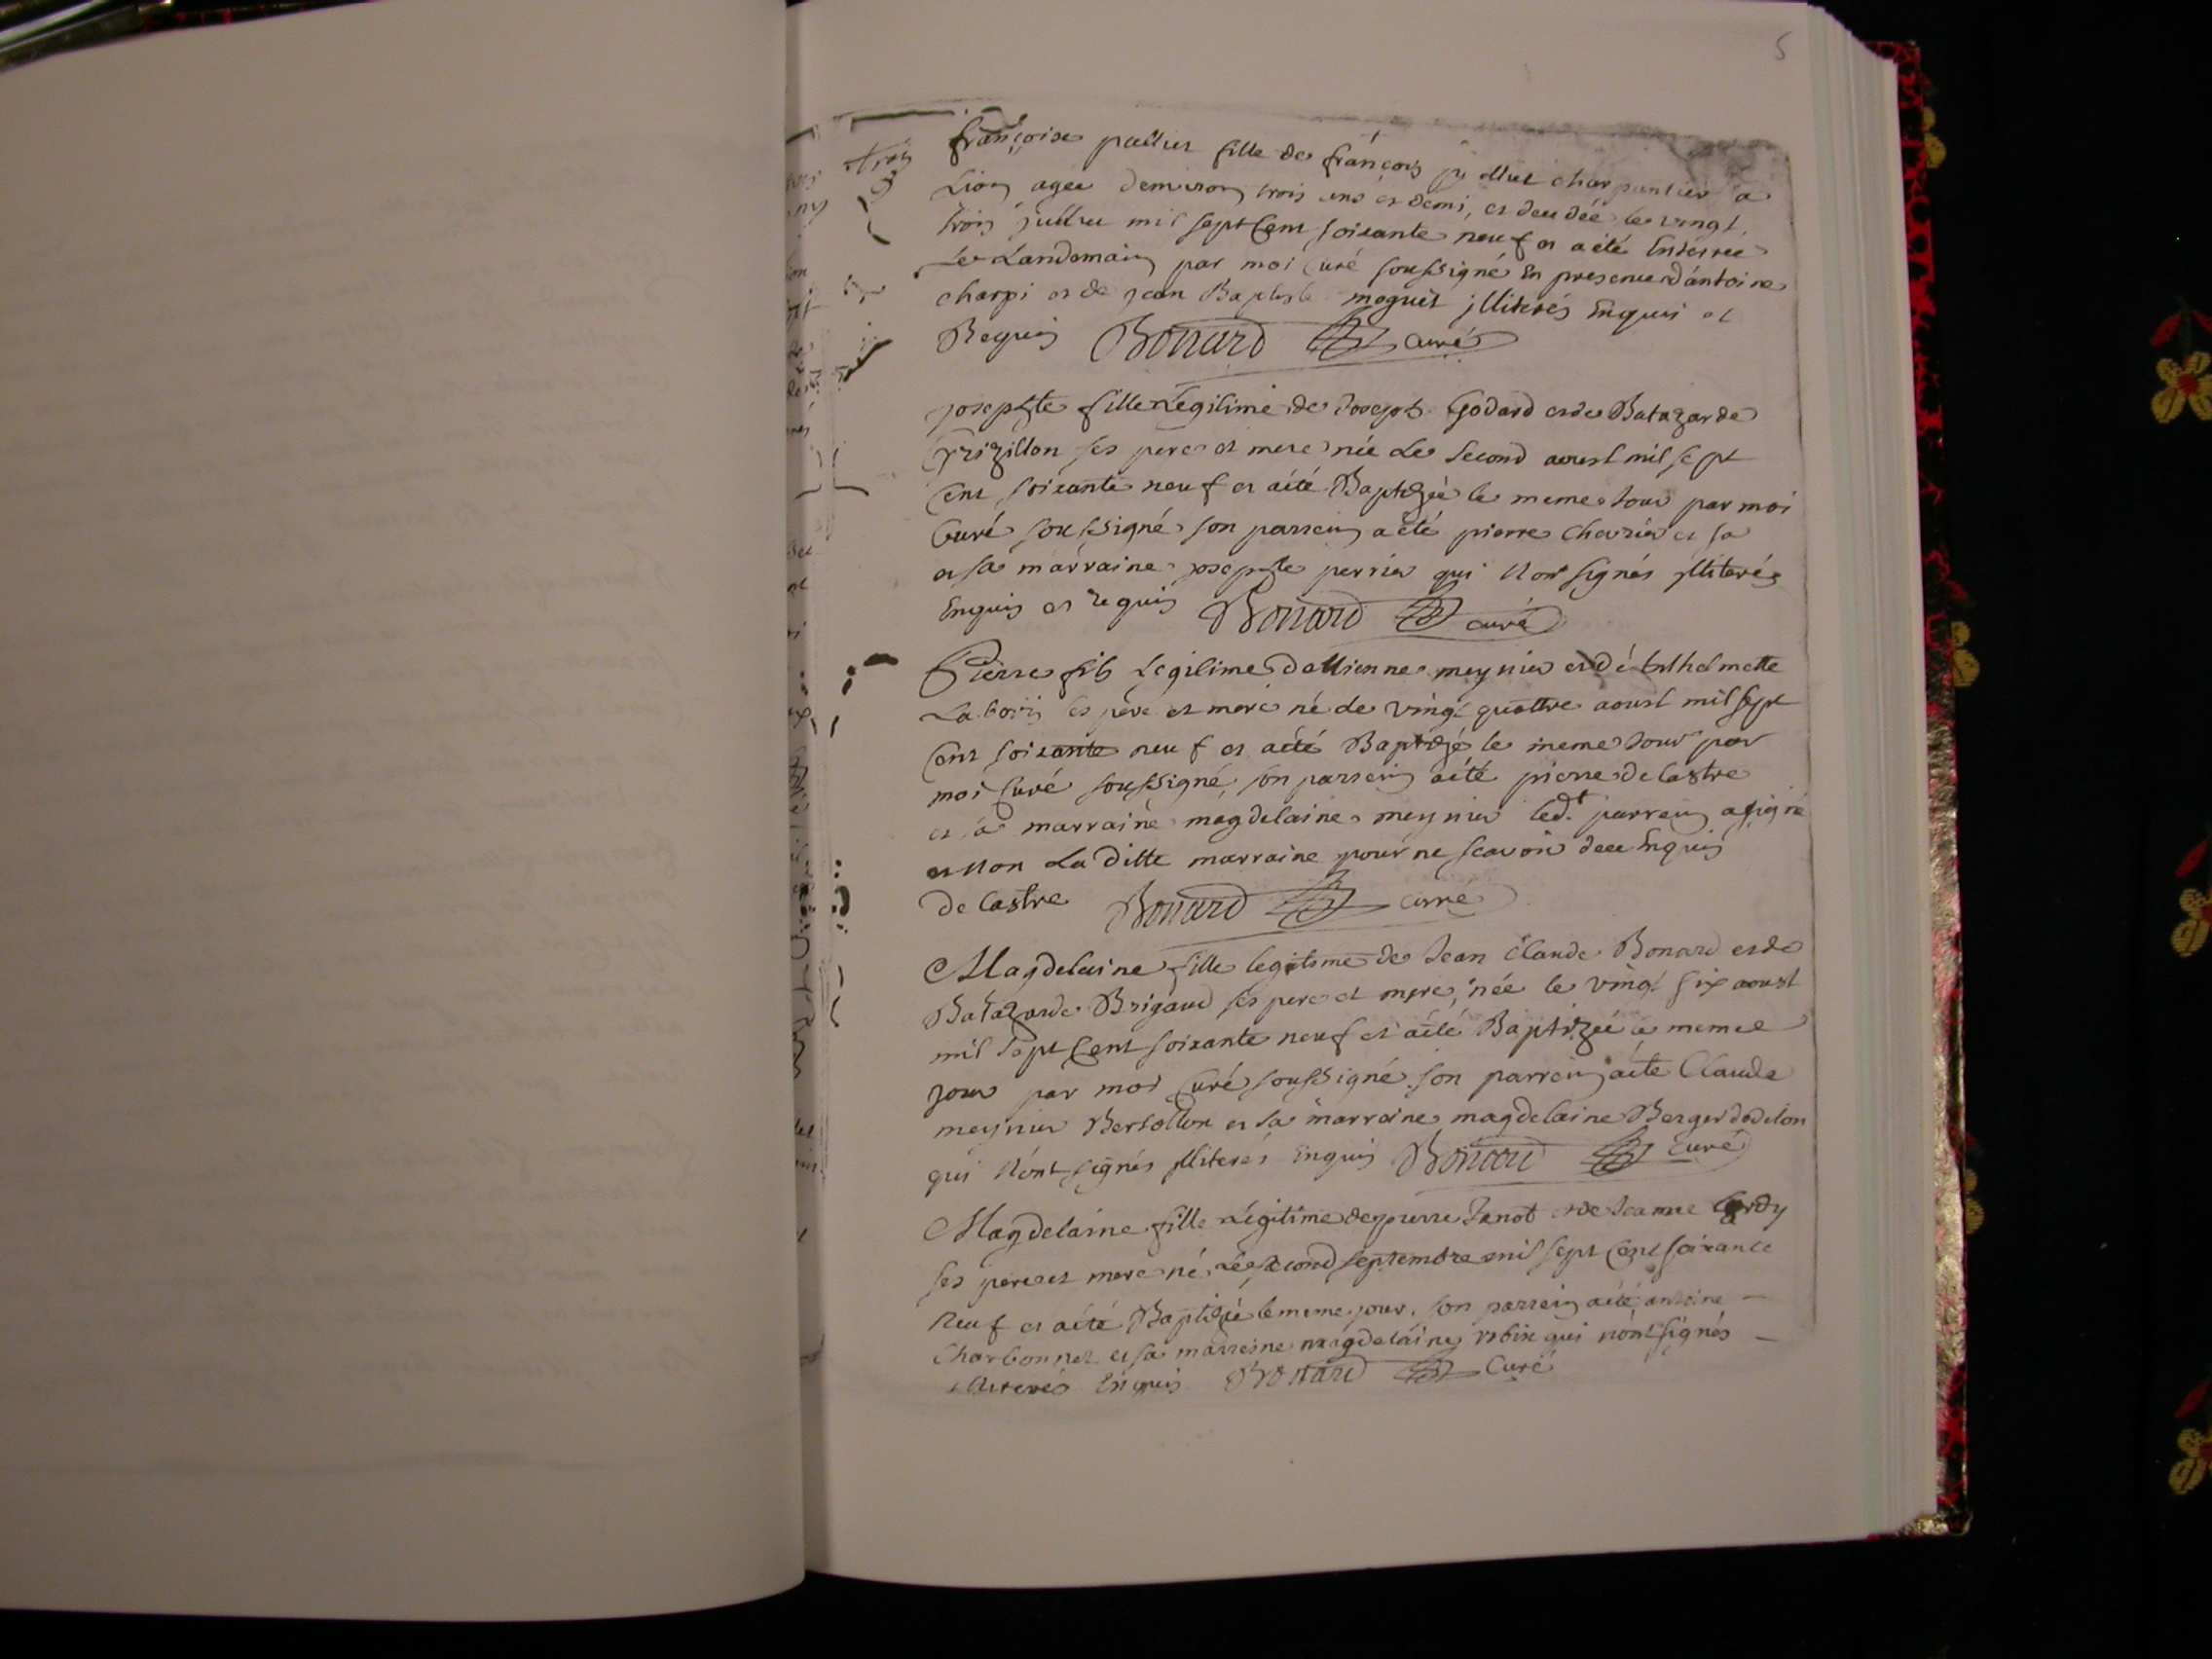 5
françoise fille de françois charpantier a
Lion agée denviron trois ans et demi, et decedée le vingt
trois juillet mil sept Cent soixante neuf et a eté Enterrée
Le Landemain par moi Curé soussigné En presence dantoine
charpi et de jean Baptiste moguet jlliterés Enquis et
Requis Bonard curé
josephte fille Legitime de Joseph Godard et de Batazarde
Grizillon ses pere et mere née Le second aoust mil sept
Cent soixante neuf et a eté Baptizée le meme Jour par moi
Curé soussigné son parrein a eté pierre et sa
et sa marraine josephte perrier qui Nont signés jlliterés
Enquis et requis Bonard curé
Pierre fils Legitime dettienne meynier et de
ses pere et mere né le vingt quattre aoust mil sept
Cent soixante neuf et a eté Baptizé le meme Jour par
moi Curé soussigné, son parrein a eté pierre delastre
et sa marraine magdelaine meynier led.t parrein a signé
et Non La ditte marraine pour ne scavoir Enquis
De lastre Bonard curé
Magdelaine fille legitime de Jean Claude Bonard et de
Batazarde Brigaud ses pere et mere, née le vingt six aoust
mil sept Cent soixante neuf et a eté Baptizée le meme
jour par moi Curé soussigné son parrein a eté Claude
meynier Bertollon et sa marraine magdelaine Berger
qui Nont signés jlliterés Enquis Bonard Curé
Magdelaine fille Legitime de pierre Janot et de Jeanne
ses pere et mere né Le second septembre mil sept Cent soixante
Neuf et a eté Baptizée le meme jour, son parrein a eté antoine
Charbonnet et sa marreine magdelaine robin qui nont signés
illiterés Enquis Bonard Curé